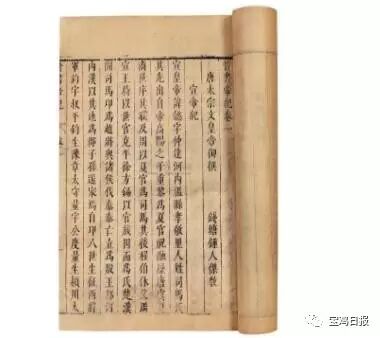 晉書帝紀卷一
唐太宗文皇帝御撰 錢塘鍾人傑校
宣帝紀
宣皇帝諱懿字仲達河內溫縣孝敬里人姓司馬氏
其先出自帝高陽之子重黎爲夏官祝融歷唐虞夏
商世序其職及周以夏官爲司馬其後程伯休父周
宣王時以世官克平徐方錫以官族因而爲氏楚漢
間司馬卬爲趙將與諸侯伐秦秦亡立爲殷王都河
內漢以其地爲郡子孫遂家焉自卬八世生征西將
軍鈞字叔平鈞生豫章太守量字公度量生潁川太
宝鸡日报